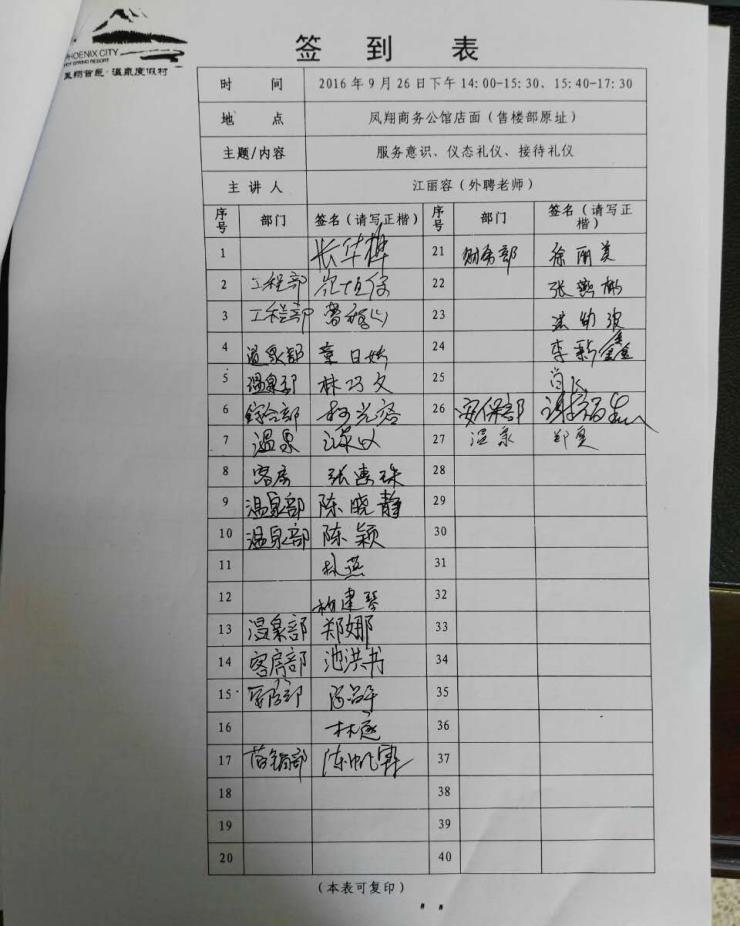 PHOENIX CITY
HOT SPRING RESORT
凤翔首邑·温泉度假村
签 到 表
时 间 2016年9月26日下午14:00-15:30、15:40-17:30
地 点 凤翔商务公馆店面（售楼部原址）
主题/内容 服务意识、仪态礼仪、接待礼仪
主 讲 人 江丽容（外聘老师）
序号 部门 签名（请写正楷） 序号 部门 签名（请写正楷）
1 21 财务部 徐丽美
2 工程部 22 张
3 工程部 23
4 温泉部 24 李 鑫
5 温泉部 林巧文 25
6 综合部 柯光容 26 安保部
7 温泉 27 温泉 郑
8 客房 张惠珠 28
9 温泉部 陈晓静 29
10 温泉部 陈颖 30
11 林燕 31
12 柳建琴 32
13 温泉部 郑娜 33
14 客房部 池洪书 34
15 客房部 35
16 林 36
17 营销部 陈 37
18 38
19 39
20 40
（本表可复印）